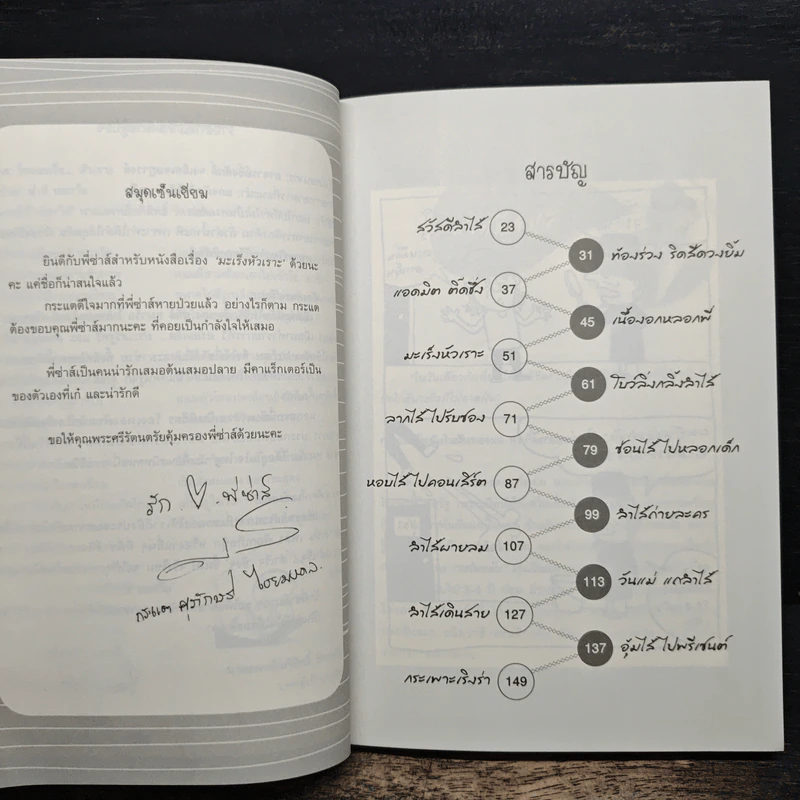 สมุดเซ็นเยี่ยม
ยินดีกับพี่ซ่าส์สำหรับหนังสือเรื่อง ‘มะเร็งหัวเราะ’ ด้วยนะ
คะ แค่ชื่อก็น่าสนใจแล้ว
กระแตดีใจมากที่พี่ซ่าส์หายป่วยแล้ว อย่างไรก็ตาม กระแต
ต้องขอบคุณพี่ซ่าส์มากนะคะ ที่คอยเป็นกำลังใจให้เสมอ
พี่ซ่าส์เป็นคนน่ารักเสมอต้นเสมอปลาย มีคาแร็กเตอร์เป็น
ของตัวเองที่เก๋ และน่ารักดี
ขอให้คุณพระศรีรัตนตรัยคุ้มครองพี่ซ่าส์ด้วยนะคะ
รัก พี่ซ่าส์
กระแต ศุภักษร ไชยมงคล
สารบัญ
สวัสดีลำไส้ 23
31 ท้องร่วง ริดสีดวงยิ้ม
แอดมิต ติ๊ดชึ่ง 37
45 เนื้องอกหลอกพี่
มะเร็งหัวเราะ 51
61 โบว์ลิ่งกลิ้งลำไส้
ลากไส้ ไปรับซอง 71
79 ซ่อนไส้ ไปหลอกเด็ก
หอบไส้ ไปคอนเสิร์ต 87
99 ลำไส้ถ่ายละคร
ลำไส้ผายลม 107
113 วันแม่ แด่ลำไส้
ลำไส้เดินสาย 127
137 อุ้มไส้ ไปพรีเซนต์
กระเพาะเริงร่า 149